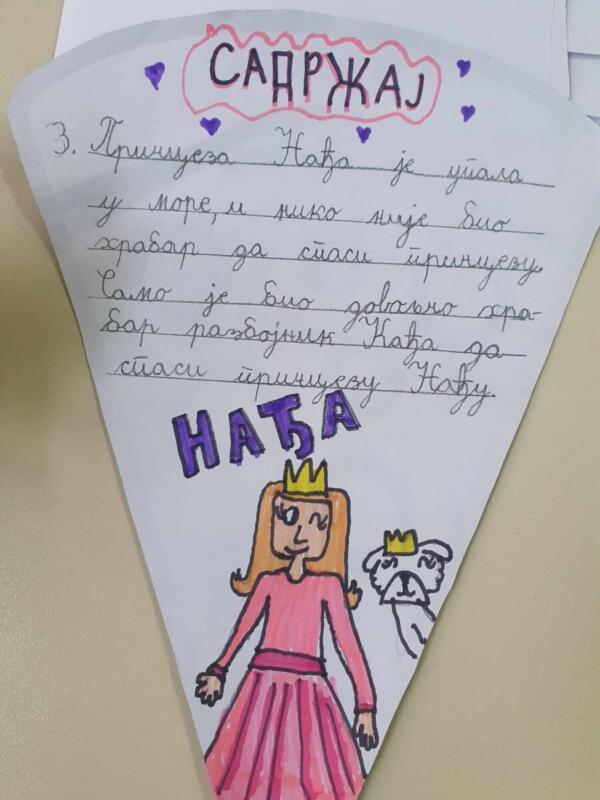 САДРЖАЈ
3. Принцеза Нађа је упала
у море, и нико није био
храбар да спаси принцезу.
Само је био довољно хра-
бар разбојник Кађа да
спаси принцезу Нађу.
НАЂА